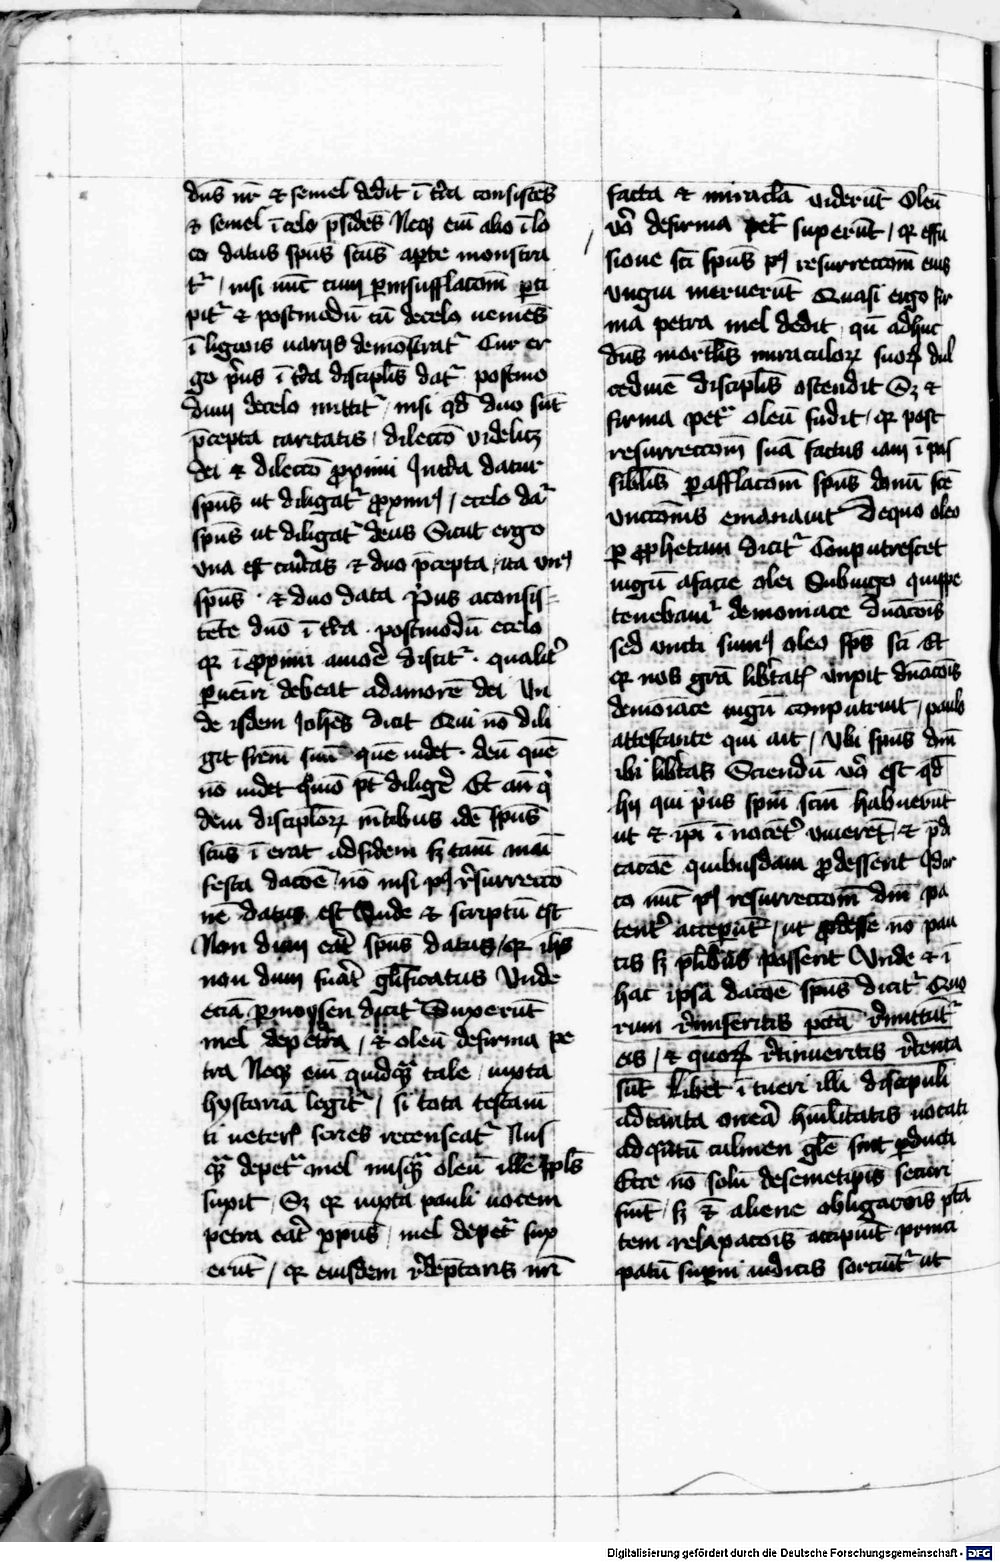 dn̄s nr̄ ⁊ semel dedit ī t̄ra consistēs
⁊ semel ī celo p̄sidēs Neq̄ꝫ em̄ alio ī lo
co datus spūs scūs ap̄te monstra
tᷣ / nisi nūc cum p̱insufflacōm̄ p̱ci
pitᷣ ⁊ postmodū cū decelo veniēs
ī liguis varijs demōstratᷣ Cur er
go p̓us ī t̄ra discipl̄is datᷣ postmo
dum decelo mittitᷣ / nisi qd̄ duo sūt
p̄cepta caritatis / dilectō videlicꝫ
dei ⁊ dilectō ꝓximi Int̄ra datur
spūs ut diligatᷣ ꝓximꝰ / ecelo datᷣ
spūs ut diligatᷣ deus Sicut ergo
vna est cāitas ⁊ duo p̄cepta / ita vnꝰ
spūs · ⁊ duo data p̓us aconsis
tēte dnō ī t̄ra · postmodū ecelo
qꝛ ī ꝓximi amoē discitᷣ · qualit̓
p̱uēiri debeat adamorē dei Vn
de isdem Joh̄es dicit Qui nō dili
git frēm suū quē videt · deū quē
nō videt quō pt̄ diligē Et an̄ q̓
dem discipl̄oꝝ mētibus idē spūs
scūs ī erat adfidem sꝫ tam̄ mai
festa dacōe / nō nisi pꝰ r̓surrectō
nē datus est Vnde ⁊ scriptū est
Non dum eāt spūs datus / qꝛ ih̄s
non dum fuāt gl̄ificatus Vnde
eciā p̱moysen dicitᷣ Suxerūt
mel depetra / ⁊ oleū defirma pe
tra Neq̄ꝫ em̄ quidq̄ꝫ tale / iuxta
hystoriā legitᷣ / si tota testam̄
ti veteris series recenseatᷣ Nus
q̄ꝫ depetᷓ mel nusq̄ꝫ oleū ille ppl̄s
suxit / Sꝫ qꝛ iuxta pauli vocem
petra eāt xpūs / mel depetᷓ sux
erūt / qꝛ eiusdem r̓dēptoris nrī
facta ⁊ miracl̄a viderūt Oleū
v̓o defirma petᷓ suxerūt / qꝛ effu
sione scī spūs pꝰ resurrectōm̄ eius
vngui meruerūt Quasi ergo fir
ma petra mel dedit / qn̄ adhuc
dn̄s mortl̄is miraculoꝝ suoꝝ dul
cedinē discipl̄is ostendit Sꝫ ⁊
firma petᷓ oleū fudit / qꝛ post
resurrectōm̄ suā factus iam ī pas
sibilis p̱ afflacōm̄ spūs donū scē
vnctōnis emanauit Dequo oleo
p̱ ꝓphetam dicitᷣ Computrescet
iugū afacie olei Subiugo quippe
tenebamᷣ demoniace dn̄acōis
sed vncti sumꝰ oleo spūs scī Et
qꝛ nos grā libtatis vnxit dn̄acōis
demoiace iugū conputruit / paulo
attestante qui ait / Vbi spūs dnī
ibi libtas Sciendū v̓o est qd̄
hij qui p̓us spm̄ scm̄ habuerūt
ut ⁊ ipī ī nocēt̓ viuerēt / ⁊ p̄di
cacōe quibusdam ꝓdesserēt Idcir
co nūc pꝰ resurrectōm̄ dnī pa
tent̓ acceperūt / ut ꝓdesse nō pau
cis sꝫ pl̄ibus possent Vnde ⁊ ī
hac ipsa dacōe spūs dicitᷣ Quo
rum r̓miseritis pctā r̓mittūtᷣ
eis / ⁊ quoꝝ r̓tinueritis r̓tenta
sūt Libet ī tueri illi discipuli
adtanta oneā hūilitatis vocati
ad q̄ntū culmen glē sint p̱ducti
Ecce nō solū desemetipīs securi
fiūt / sꝫ ⁊ aliene obligacōis ptā
tem relaxacōis accipiūt princi
patū sup̱ni iudicis sorciūtᷣ ut